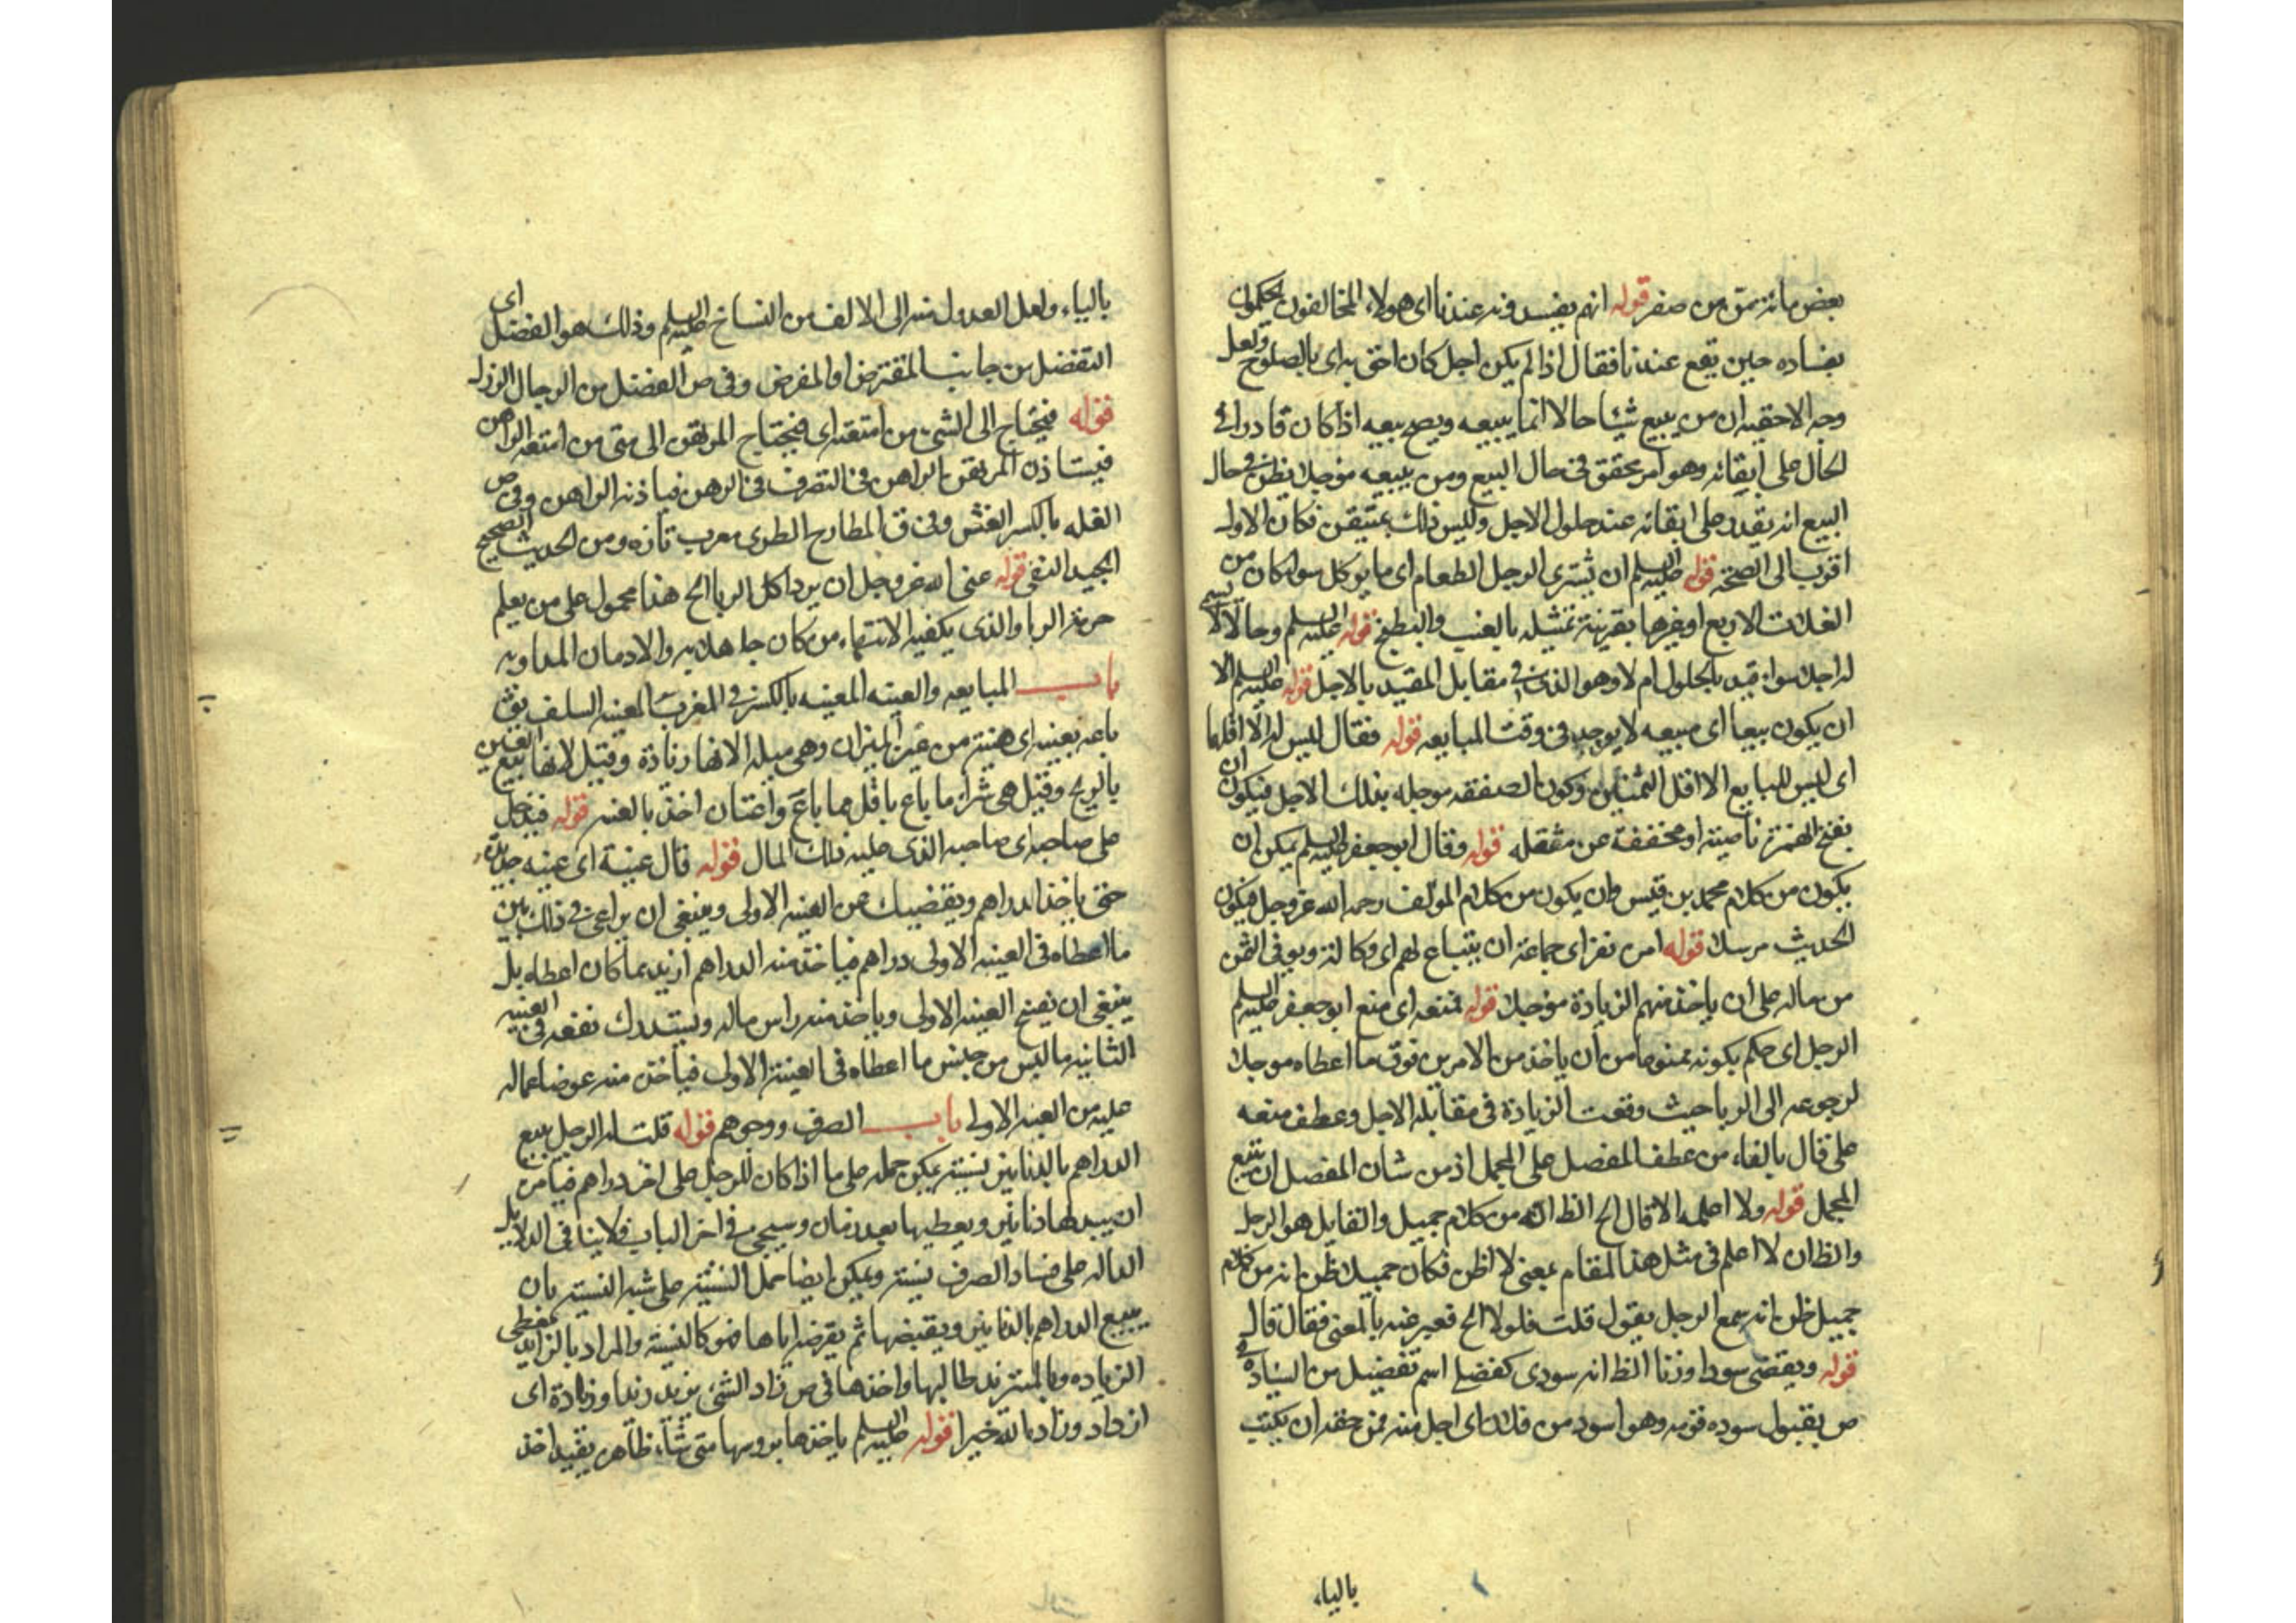 بعض مائه تمق من صفر قوله انهم يفسدونه عندنا اى هولاء المخالفون يحكمون
بفساده حين يقع عندنا فقال اذا لم يكن اجل كان احق به اى بالصلوح ولعل
وجه الاحقيه ان من يبيع شيئا حالا انما يبيعه ويصح بيعه اذا كان قادرا فى
الحال على ايقائه وهو امر محقق فى حال البيع ومن يبيعه مؤجلا يظن فى حال
البيع انه يقدر على ابقائه عند حلول الاجل وليس ذلك بمتيقن فكان الاول
اقرب الى الصحة قوله عليه السلم ان يشترى الرجل الطعام اى ما يوكل سواء كان من
الغلات الاربع او غيرها بقرينة تمثيله بالعنب والبطيخ قوله عليه السلم وحالا لا يسمى
له اجلا سواء قيد بالحلول ام لا وهو الذى فى مقابل المقيد بالاجل قوله عليه السلم الا
ان يكون بيعا اى مبيعه لا يوجد فى وقت المبايعه قوله فقال ليس له الا اقلهما
اى ليس للبايع الا اقل الثمنين وكون الصفقه موجله بذلك الاجل فيكون ان
بفتح الهمزة ناصبة او مخففة عن مثقله قوله وقال ابو جعفر عليه السلم يمكن ان
يكون من كلام محمد بن قيس وان يكون من كلام المؤلف رحمه الله عز وجل فيكون
الحديث مرسلا قوله امر نفر اى جماعة ان يبتاع لهم اى وكالة ويوفى الثمن
من ماله على ان ياخذ منهم الزيادة مؤجلا قوله فمنعه اى منع ابو جعفر عليه السلم
الرجل اى حكم بكونه ممنوعا من ان ياخذ من الامرين فوق ما اعطاه موجلا
لرجوعه الى الربا حيث وقعت الزيادة فى مقابلة الاجل وعطف منعه
على قال بالفاء من عطف المفصل على المجمل اذ من شان المفصل ان يتبع
المجمل قوله ولا اعلمه الا قال الخ الظ انه من كلام جميل والقايل هو الرجل
والظ ان لا اعلم فى مثل هذا المقام بمعنى لا اظن فكان جميلا ظن انه من كلام
جميل ظن انه سمع الرجل يقول قلت فلولا الخ فعبر عنه بالمعنى فقال قال
قوله ويقضى سودا وزنا الظ انه سودى كفضلى اسم تفضيل من السيادة فى
ص يقبول سوده قومه وهو اسود من فلان اى اجل منه فمن حقه ان يكتب
بالياء
بالياء ولعل العدول منه الى الالف من النساخ عليه السلم وذلك هو الفضل اى
التفضل من جانب المقترض او المقرض وفى ص الفضل من الرجال الرزل
قوله فيحتاج الى الشىء من امتعته اى فيحتاج المرتهن الى شىء من امتعه الراهن
فيستاذن المرتهن الراهن فى التصرف فى الرهن فياذنه الراهن وفى ص
الغله بالكسر الغش وفى ق المطارح الطرى معرب تازه ومن الحديث الصحيح
الجيد النقى قوله عنى الله عز وجل ان يرد اكل الربا الخ هذا محمول على من يعلم
حرمة الربا والذى يكفيه الانتهاء من كان جاهلا به والادمان المداوبه
باب المبايعه والعينه المعينه بالكسر فى المغرب العينه السلف يق
باعه بعينه اى هنيته من عين الميزان وهى ميله الانها زيادة وقيل لانها بيع العين
بالربح وقيل هى شراء ما باع باقل مما باع واعتان اخذ بالعينه قوله فيدخل
على صاحبه اى صاحبه الذى عليه ذلك المال قوله قال عينة اى عينه جديدة
حتى ياخذ الدراهم ويقضيك من العينه الاولى وينبغى ان يراعى فى ذلك بين
ما اعطاه فى العينه الاولى دراهم فياخذ منه الدراهم ازيد مما كان اعطاه بل
ينبغى ان يفسخ العينه الاولى وياخذ منه راس ماله ويستدرك نفعه فى العينه
الثانيه ما ليس من جنس ما اعطاه فى العينة الاولى فياخذ منه عوضا عما له
عليه من العينه الاولى باب الصرف ووجوهه قوله قلت له الرجل يبيع
الدراهم بالدنانير نسيته يمكن حمله على ما اذا كان للرجل على اخر دراهم فيامر
ان يبدلها دنانير ويعطيها بعد زمان وسيجىء فى اخر الباب فلا ينافى الدلايل
الداله على فساد الصرف نسيته ويمكن ايضا حمل النسيئة على شبه النسيته بان
يبيع الدراهم بالدنانير ويقبضها ثم يقرضه اياها فهو كالنسيه والمراد بالزايد معطى
الزياده وبالمستزيد طالبها واخذها فى ص زاد الشىء يزيد زيدا وزيادة اى
ازداد وزاده الله خيرا قوله عليه السلم ياخذها بروسها متى شاء ظاهره يفيد اخذ